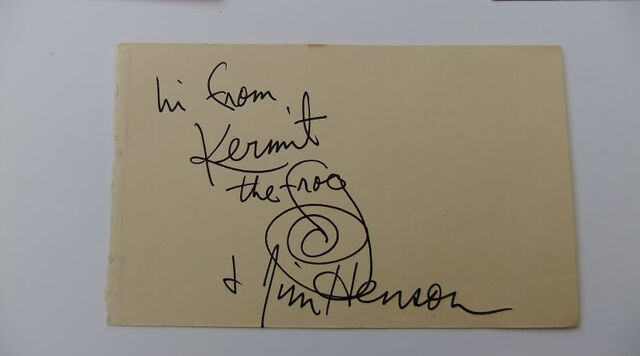 hi from
Kermit
the frog
& Jim Henson